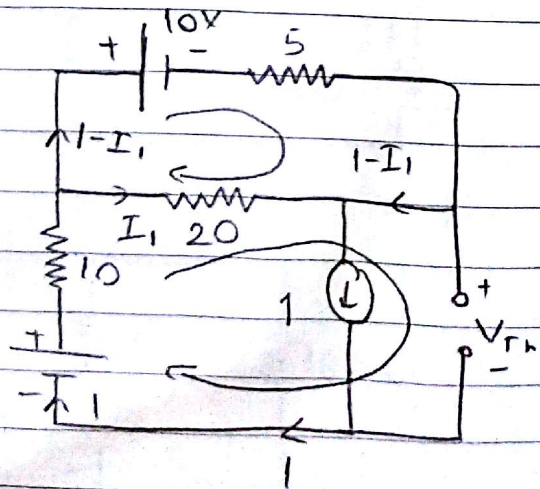 10V
+ - 5
1-I₁ 1-I₁
I₁ 20
10
1 +
+ VTh
- 1 -
1